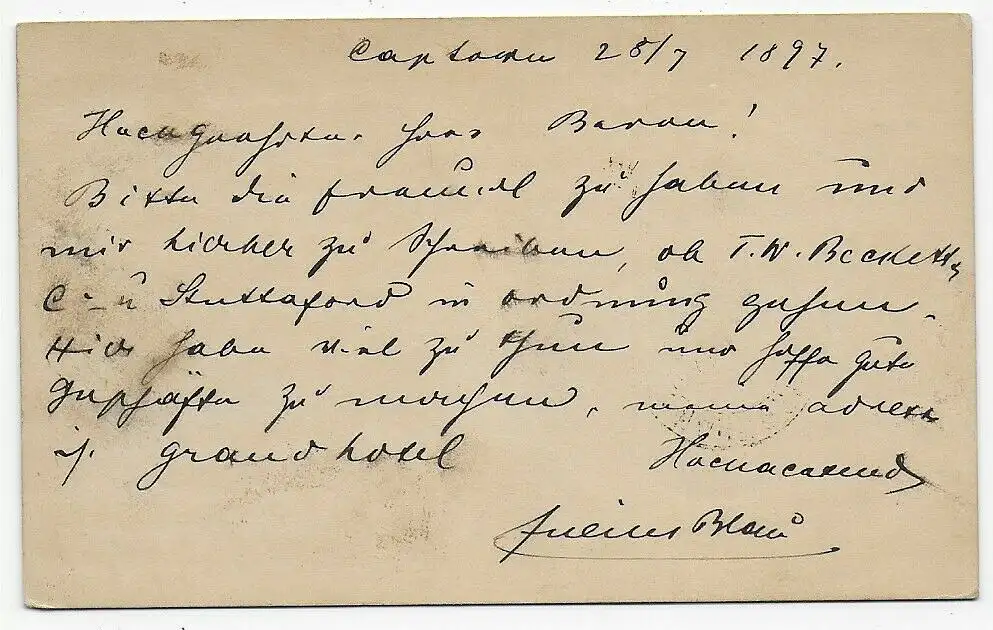 Captown 28/7 1897.
Hochgeehrter Herr Baron!
Bitte die freundl zu haben und
mir hierher zu schreiben, ob T.W. Beckett &
C - u Stuttaford in ordnung gehen.
Hier habe viel zu thun und hoffe gute
Geschäfte zu machen, meine adresse
is. grand hotel
Hochachtend
Julius Blau